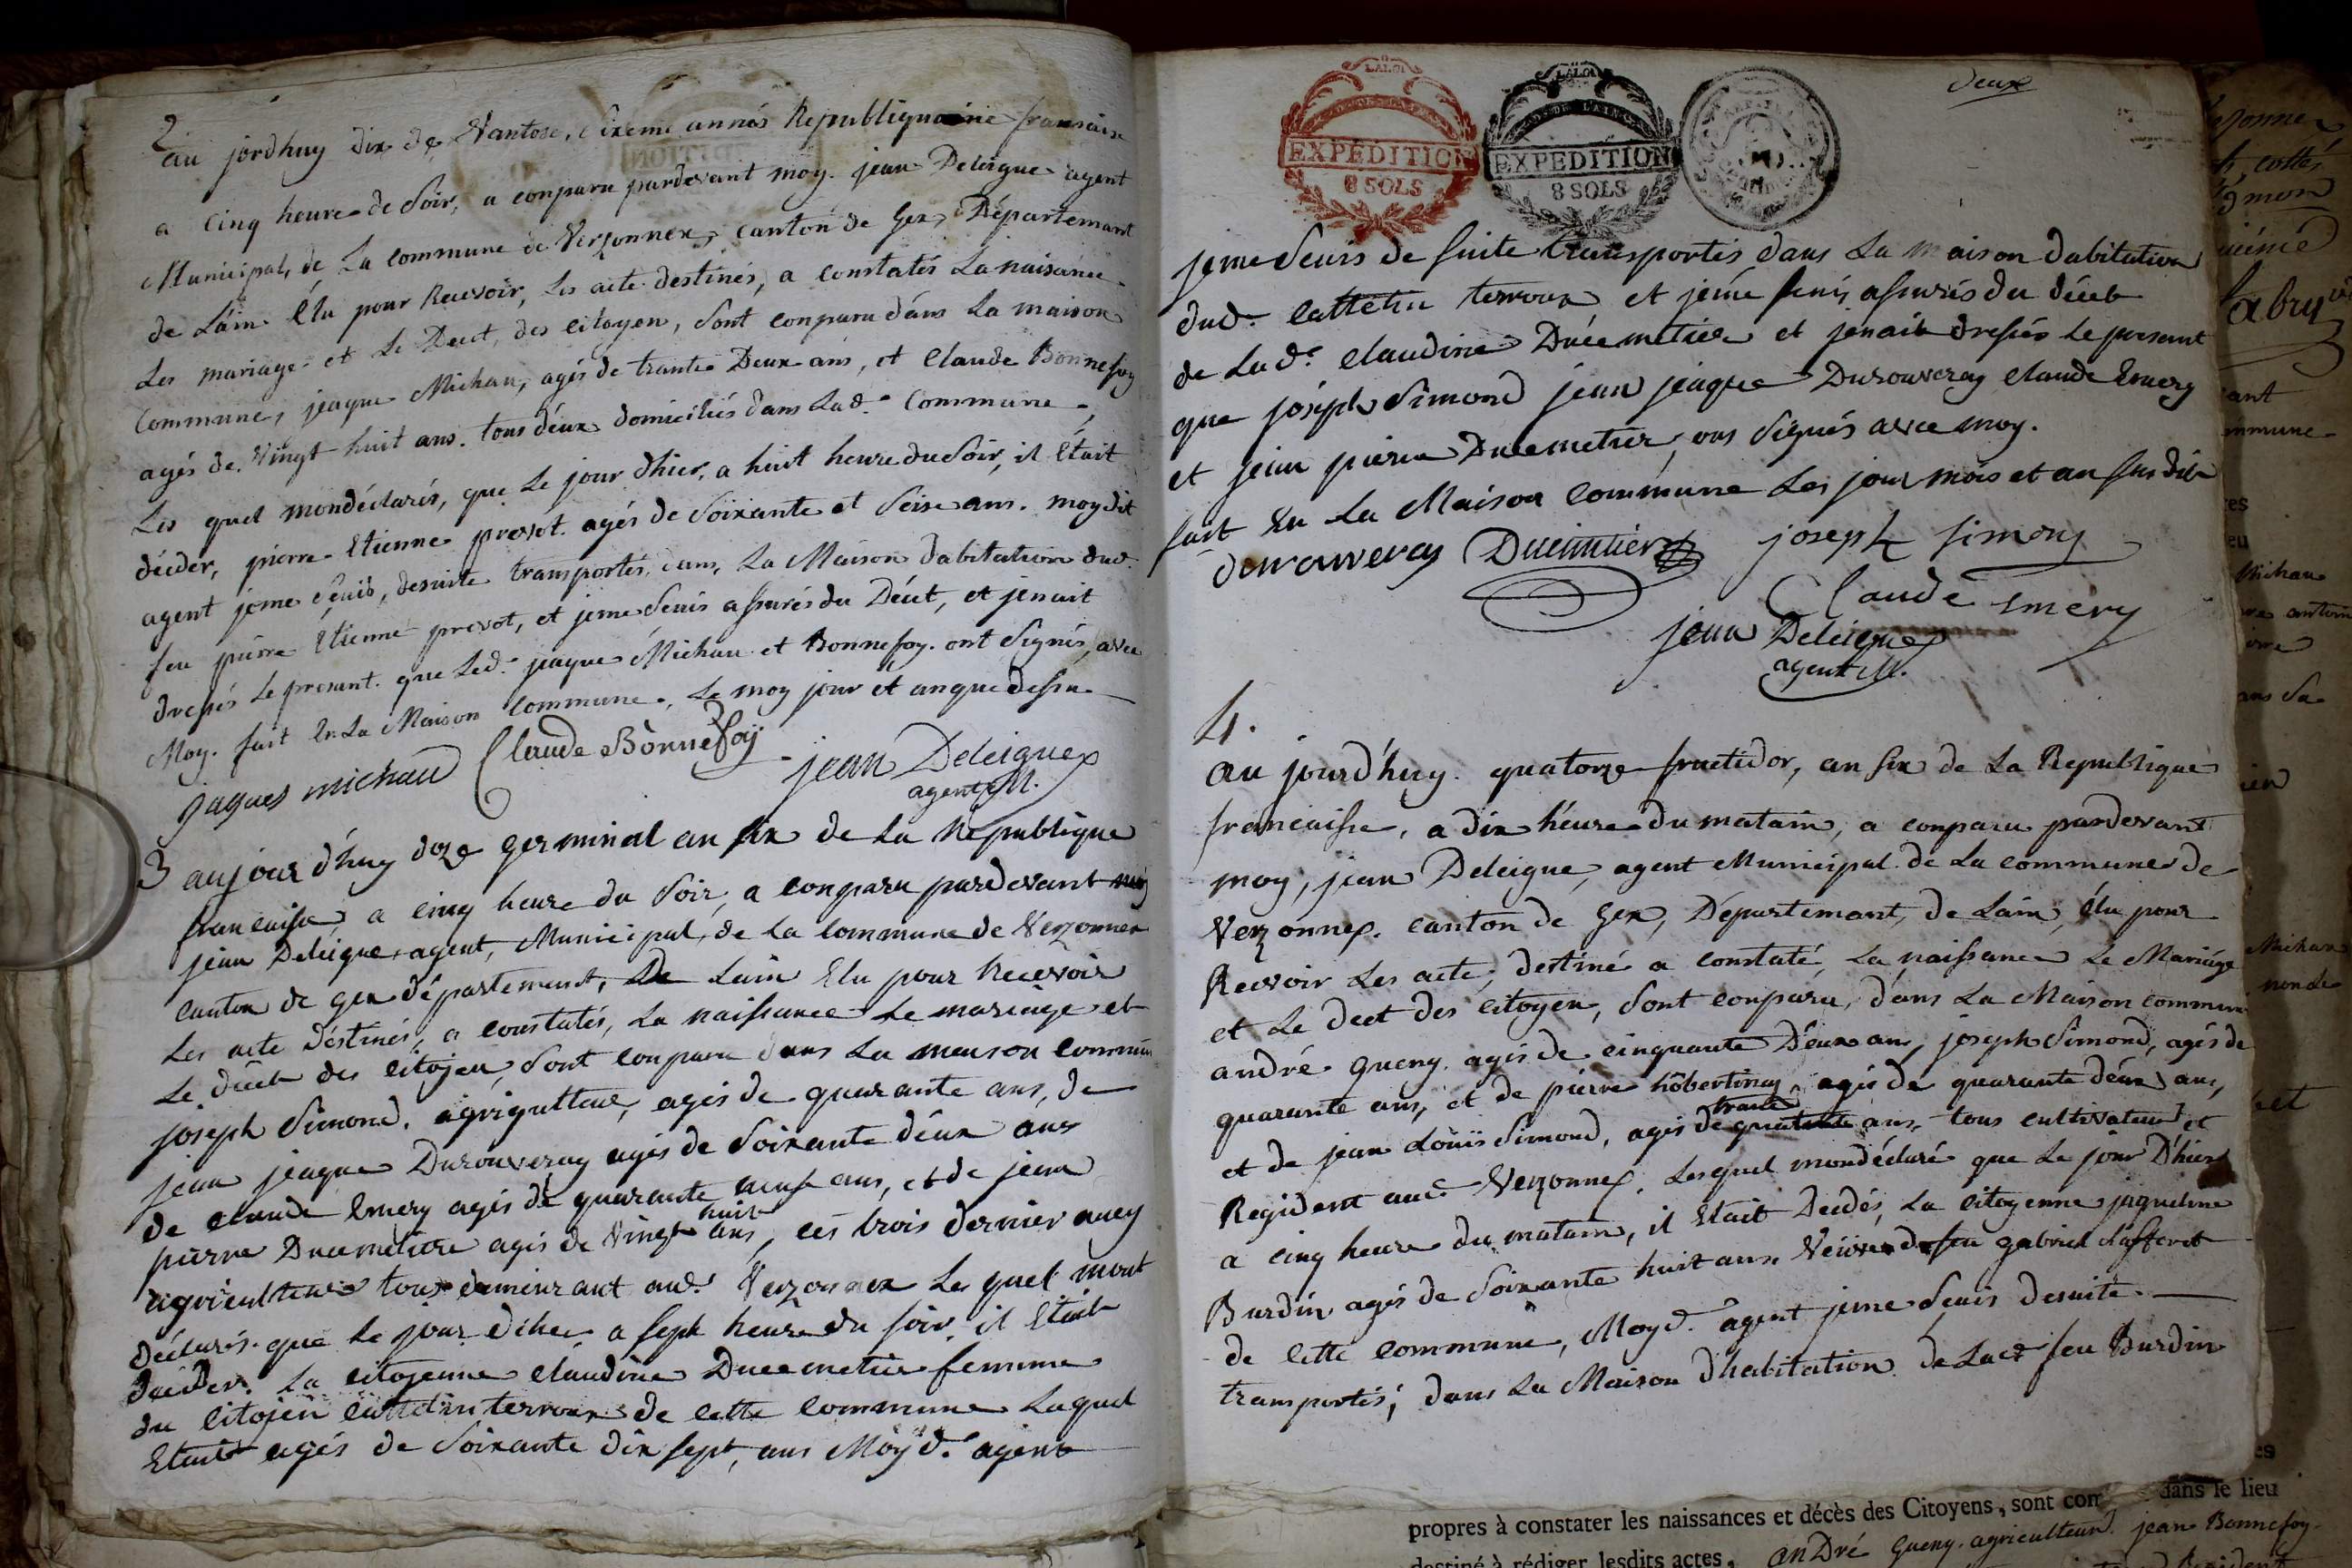 2
au jordhuy dix de Vantose, sixeme annés Republiquaine fransaire
a cinq heure de soir, a conparu pardevant moy. jean Deleigue agent
Municipal, de La commune de Verzonnex, canton de Gex, Departemant
de Lain Élu pour Recevoir, Les acte destinés, a constatés La naisance
Les mariage et Le Decet, des citoyen, sont conparu dans La maison
Commune, jeaque Michau, agés de trante Deux ans, et Claude Bonnefoy
agés de vingt huit ans. tous deux domiciliés dans Lad.e Commune,
Les quel mondéclarés, que Le jour dhier, a huit heure du soir, il Etait
décder, pierre Etienne prevot. agés de soixante et seise ans. moy dit
agent jeme seuis, desuite transportés, dans, La Maison dabitation dud.
feu pierre Etienne prevot, et jeme seuis assurés du Décet, et jenait
dressés Le presant. que Led. jaque Michau et Bonnefoy. ont signés, avec
Moy. fait En La Maison commune, Le moy jour et anque dessu
jaques michaud Claude Bonnefoy jean Deleigue
agent M.
3 aujour dhuy doze germinal an six de La Republique
francaisse, a cinq heure du soir, a conparu pardevant moy
jean Deleigue agent, Municipal, de La commune de Verzonnex
canton de gex département, De Lain Elu pour Recevoir
Les acte déstinés, a constatés, La naissance Le mariage et
Le décet des citojen, sont conparu dans La meuson commun
joseph Simond. agrigulteur, agés de quarante ans, de
jean jeaque Durouveray agés de soixante déux ans
de claude Emery agés de quarante neuf ans, et de jean
huit
pierre Ducemetiere agés de vingt ans, ces trois dernier aucy
agriculteur tous demeurant aud. Verzonnex Le quel mont
déclarés. que Le jour diher a sept heure du soir, il Etait
décéder. La citojenne claudine Ducemetier femme
du Citojen cattelin terroux de cette commune Laquel
Etait agés de soixante dix sept, ans Moy d. agent
deux
LALOI
EXPÉDITION
8 SOLS
LALOI
EXPEDITION
8 SOLS
jeme seuis de suite transportés dans La maison dabitation
dud. cattelin terroux et jeme seuis assurés du décet
de Lad.e claudine Ducemetier et jenait dressés Le presant
que joséph Simond jean jeaque Durouveray claude Emery
et jean pierre Ducemetier, ons signés avec moy.
fait En La Maison commune Les jour mois et an sus dit
durouveray Ducimtier joseph simon
Claude emery
jean Deleigue
agent M.
4.
au jourd'huy. quatorze fructidor, an six de La Republique
francaisse, a dix héure du matain, a conparu pardevant
moy, jean Deleigue, agent Municipal de La commune de
Verzonnex. canton de Gex, Départemant, de Lain, élu pour
Recevoir Les acte, destiné a constaté, La naissance Le Mariage
et Le decet des citoyen, sont conparu, dans La Maison commun
andré queny. agés de cinquante Déux ans, joseph Simond, agés de
quarante ans, et de pierre hôbertinay, agés de quarante déux ans,
trante
et de jean Louis Simond, agés de ans, tous cultivateur et
Regident aud. Verzonnex. Lesquel mondéclaré que Le jour D'hier
a cinq heure du matain, il Etait Decédés, La citoyenne jaqueline
Burdin agés de soixante huit ans. Veuve de feu gabriel
de cette commune, Moy d. agent jeme seuis desuite
transportés, dans La Maison dhabitation de Lad.e feu Burdin
propres à constater les naissances et décès des Citoyens, sont com dans le lieu
destiné à rédiger lesdits actes, anDré queny. agriculteur. jean Bonnefoy.